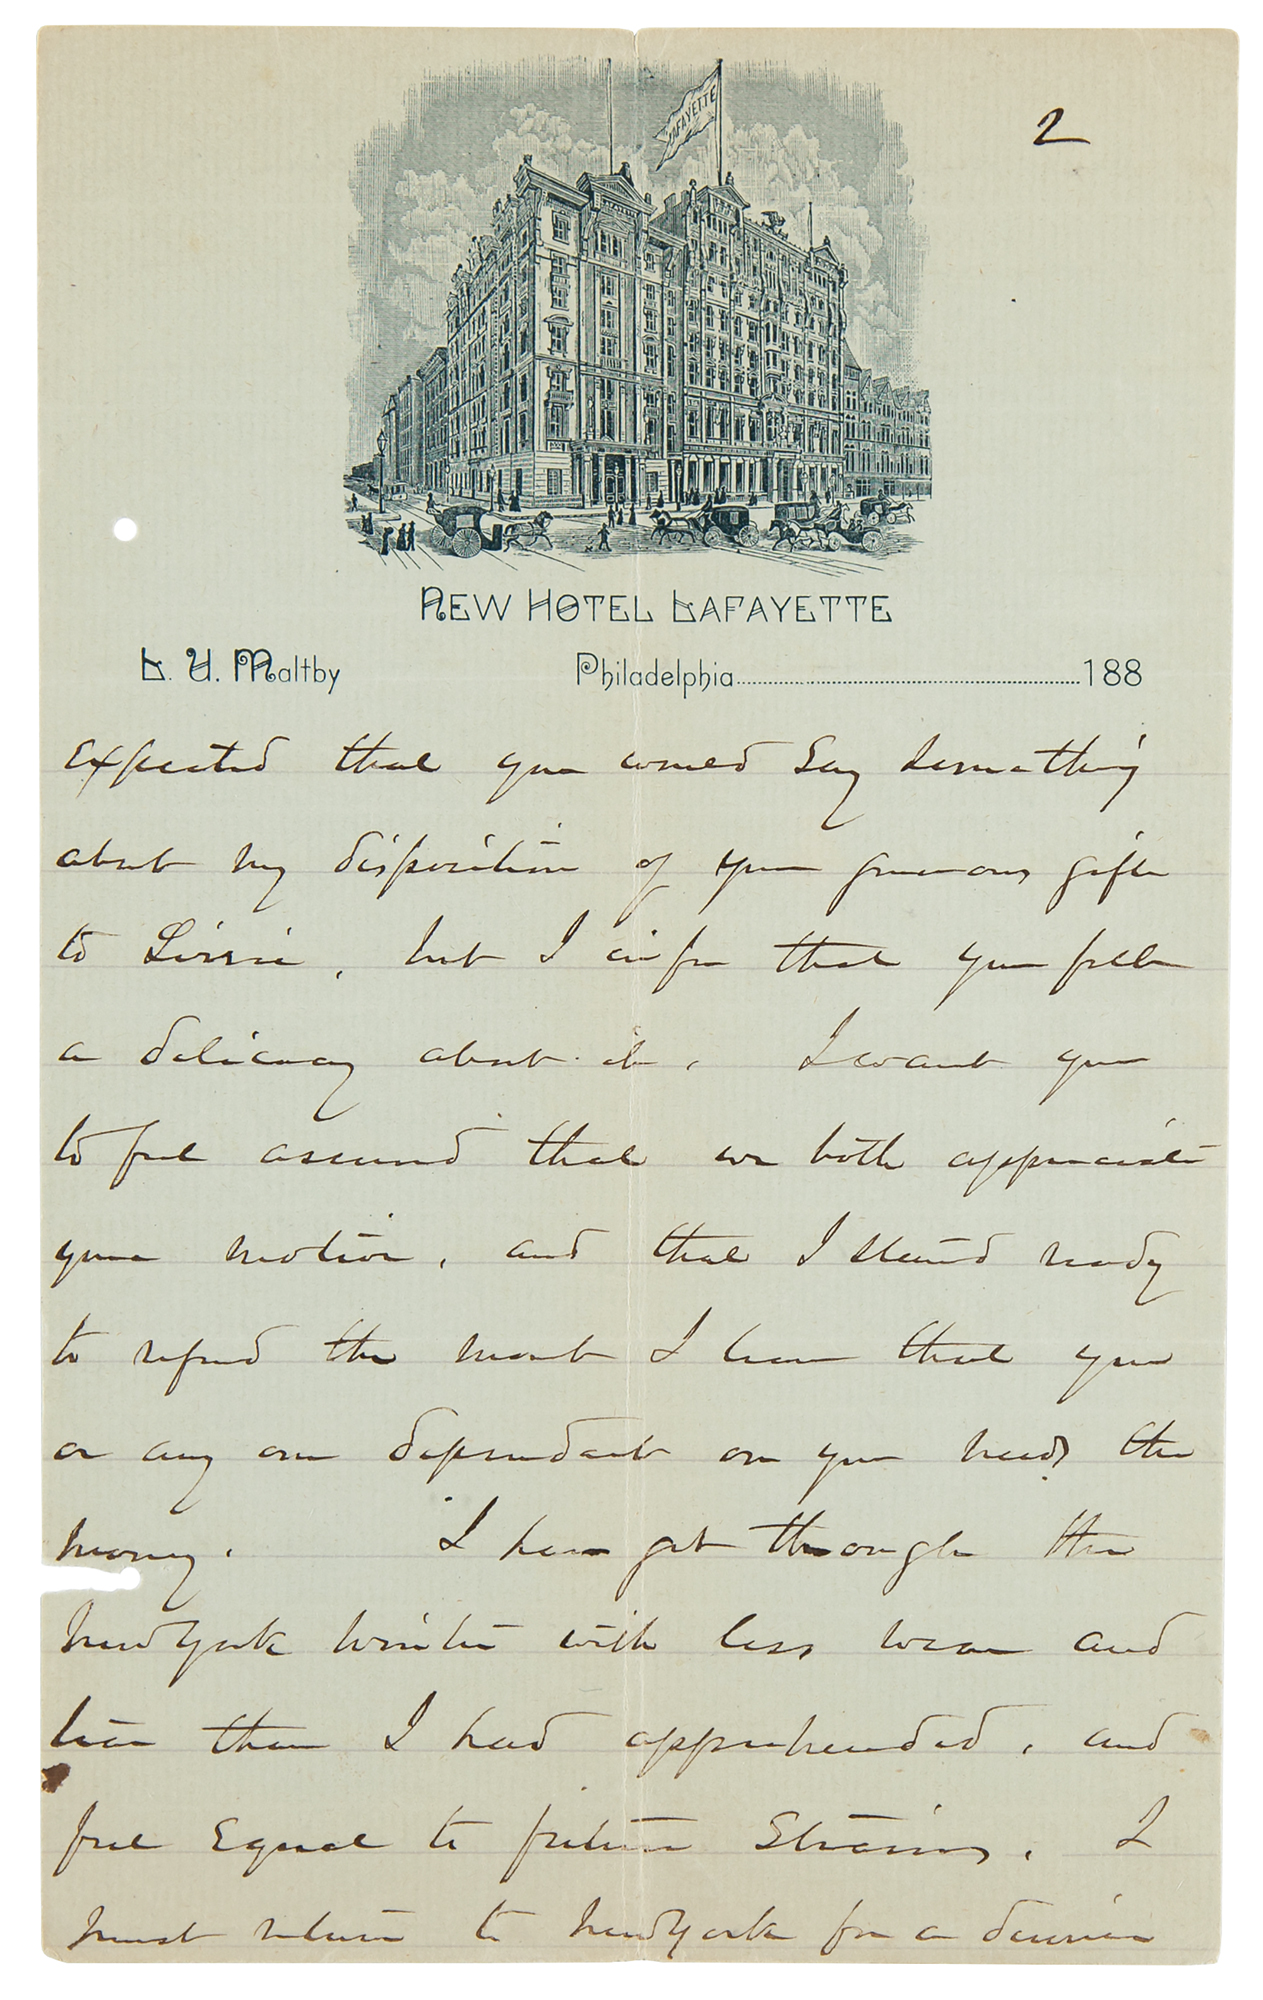 LAFAYETTE
2
NEW HOTEL LAFAYETTE
L. U. Maltby Philadelphia 188
expected that you would say something
about my disposition of your generous gift
to Lizzie, but I infer that you felt
a delicacy about it. I want you
to feel assured that we both appreciate
your motive, and that I stand ready
to refund the moment I learn that you
or any one dependant on you needs the
money. I have got through the
New York Winter with less wear and
tear than I had apprehended, and
feel equal to future strains. I
must return to New York for a dinner